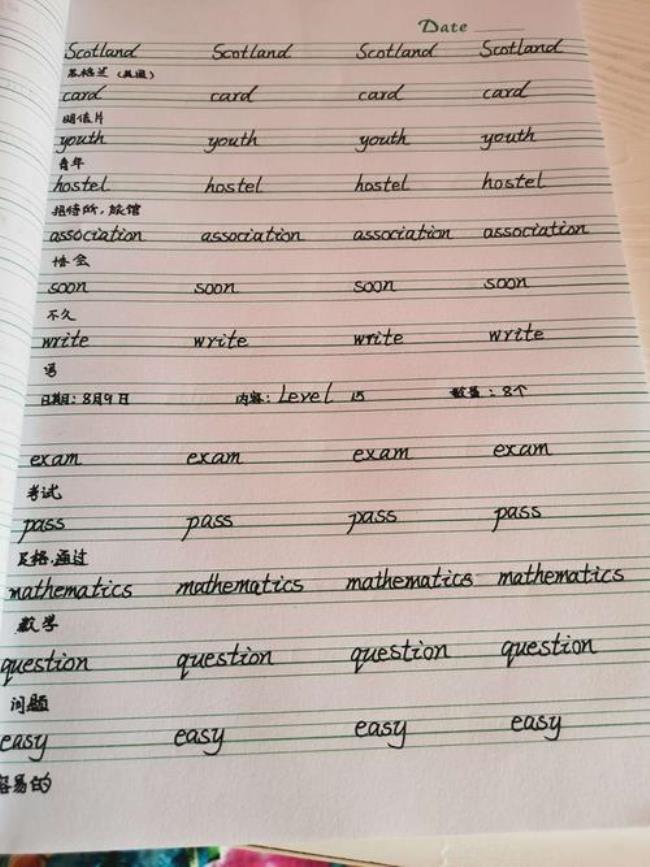 Date
Scotland Scotland Scotland Scotland
苏格兰（英国）
card card card card
明信片
youth youth youth youth
青年
hostel hostel hostel hostel
招待所，旅馆
association association association association
协会
soon soon soon soon
不久
write write write write
写
日期：8月9日 内容：Level 15 数量：8个
exam exam exam exam
考试
pass pass pass pass
及格．通过
mathematics mathematics mathematics mathematics
数学
question question question question
问题
easy easy easy easy
容易的